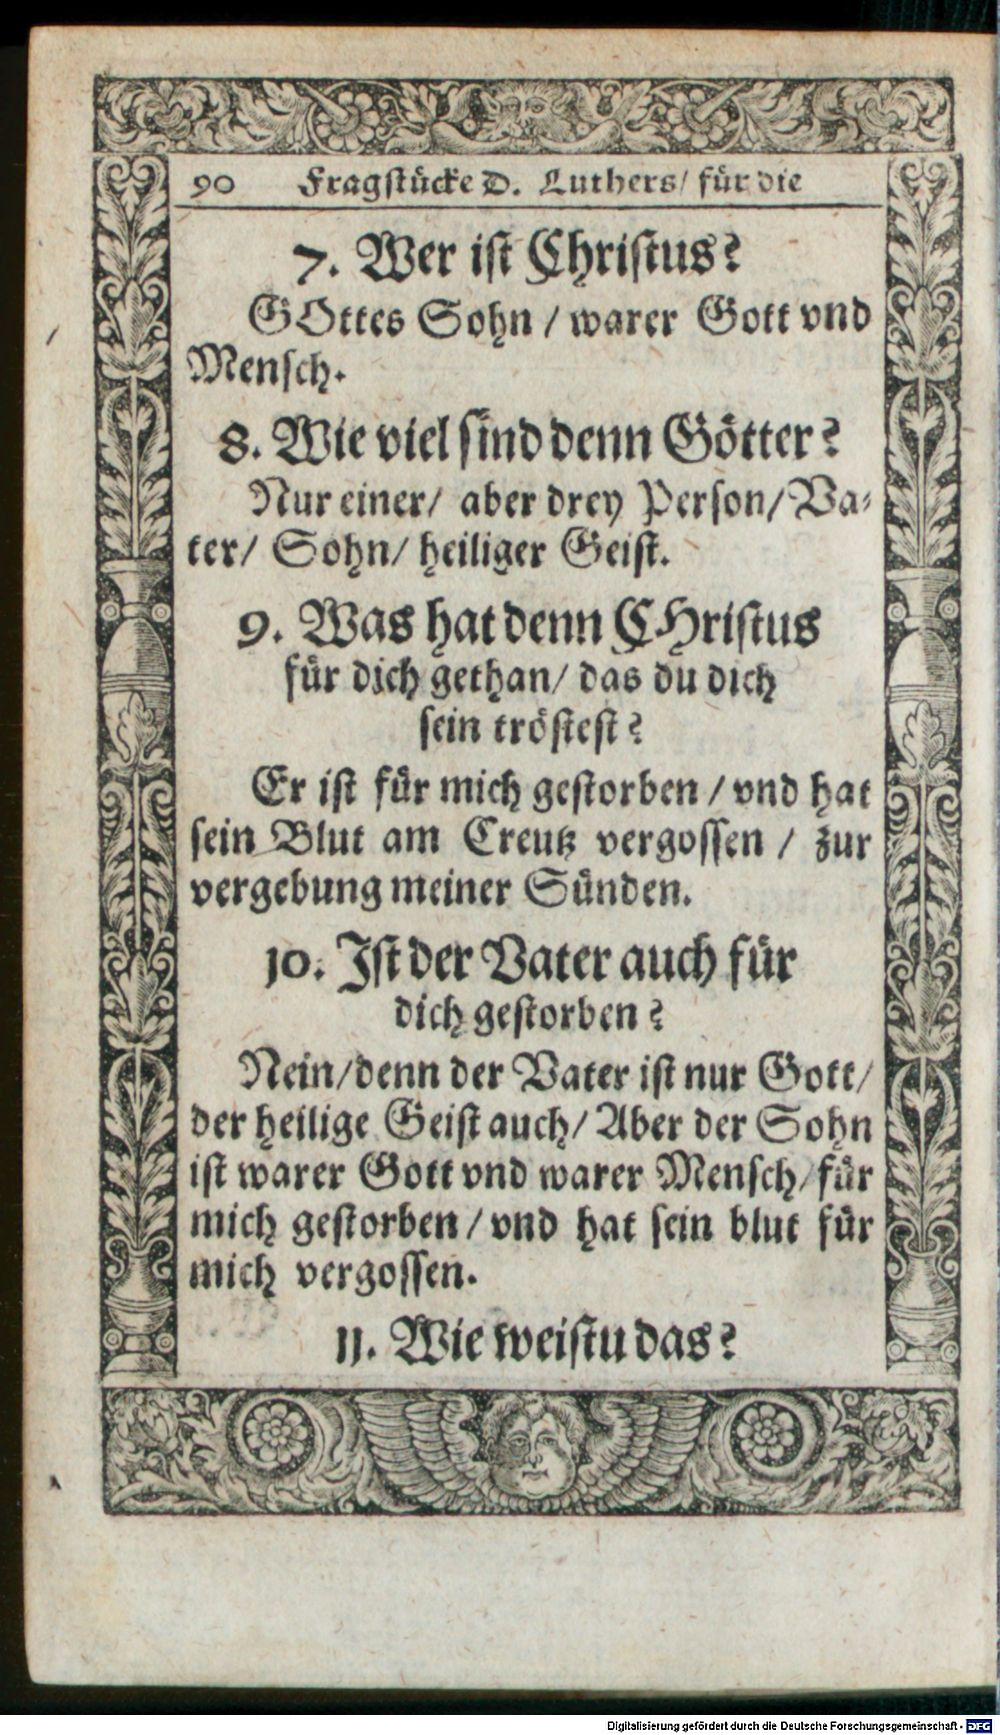 90 Fragstücke D. Luthers/ für die
7. Wer ist Christus?
GOttes Sohn / warer Gott vnd
Mensch.
8. Wie viel sind denn Götter?
Nur einer/ aber drey Person/ Va-
ter/ Sohn/ heiliger Geist.
9. Was hat denn CHristus
für dich gethan/ das du dich
sein tröstest?
Er ist für mich gestorben / vnd hat
sein Blut am Creutz vergossen / zur
vergebung meiner Sünden.
10. Ist der Vater auch für
dich gestorben?
Nein/ denn der Vater ist nur Gott/
der heilige Geist auch/ Aber der Sohn
ist warer Gott vnd warer Mensch/ für
mich gestorben / vnd hat sein blut für
mich vergossen.
11. Wie weistu das?
Digitalisierung gefördert durch die Deutsche Forschungsgemeinschaft - DFG